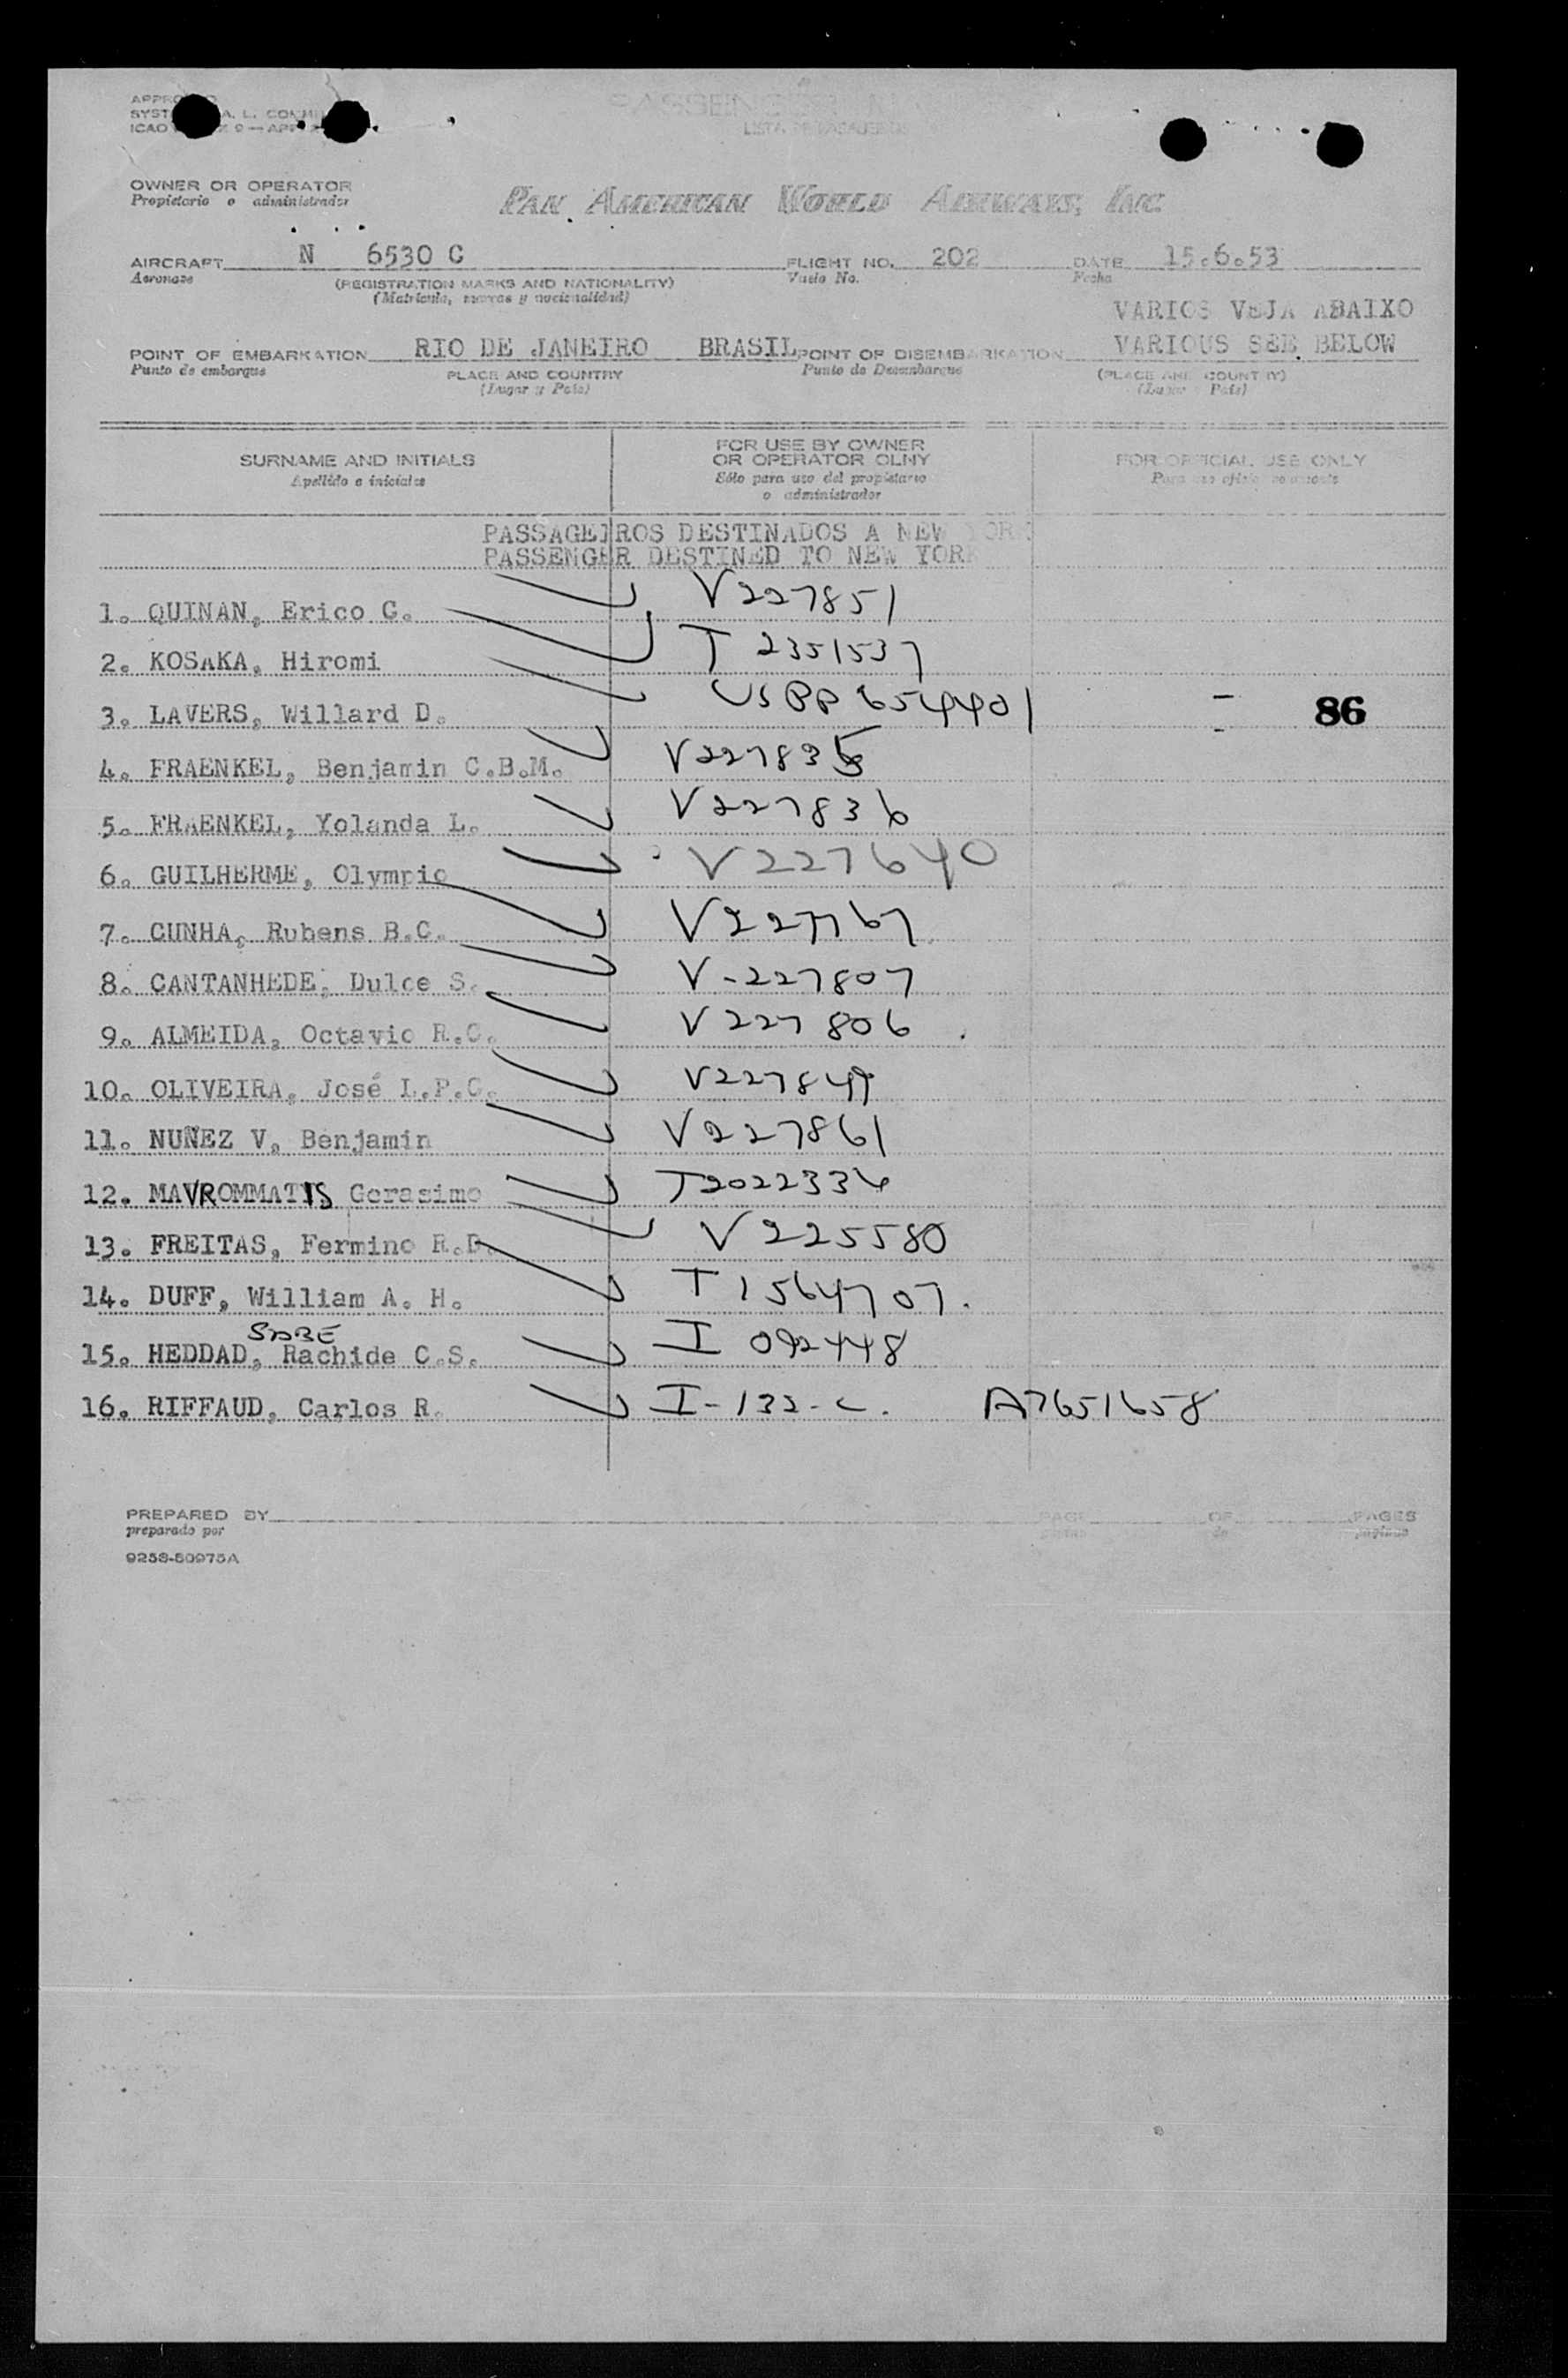 PASSENGER
LISTA DE PASAJEROS
OWNER OR OPERATOR
Propietario o administrador
PAN AMERICAN WORLD AIRWAYS, INC.
AIRCRAFT N 6530 C FLIGHT NO. 202 DATE 15.6.53
Aeronave (REGISTRATION MARKS AND NATIONALITY) Vuelo No. Fecha
(Matrícula, marcas y nacionalidad)
VARIOS VEJA ABAIXO
POINT OF EMBARKATION RIO DE JANEIRO BRASIL POINT OF DISEMBARKATION VARIOUS SEE BELOW
Punto de embarque PLACE AND COUNTRY Punto de Desembarque (PLACE AND COUNTRY)
(Lugar y País) (Lugar y País)
SURNAME AND INITIALS
Apellido e iniciales
FOR USE BY OWNER
OR OPERATOR OLNY
Sólo para uso del propietario
o administrador
FOR OFFICIAL USE ONLY
Para uso oficial solamente
PASSAGEIROS DESTINADOS A NEW YORK
PASSENGER DESTINED TO NEW YORK
1. QUINAN, Erico G. V227851
2. KOSAKA, Hiromi T 2351537
3. LAVERS, Willard D. USPP 654401 86
4. FRAENKEL, Benjamin C.B.M. V227835
5. FRAENKEL, Yolanda L. V227836
6. GUILHERME, Olympio V227640
7. CUNHA, Rubens B.C. V227767
8. CANTANHEDE, Dulce S. V-227807
9. ALMEIDA, Octavio R.C. V227806
10. OLIVEIRA, José L.P.C. V227849
11. NUÑEZ V, Benjamin V227861
12. MAVROMMATIS Gerasimo T2022334
13. FREITAS, Fermino R.D. V225580
14. DUFF, William A. H. T1564707.
SABE
15. HEDDAD, Rachide C.S. I 092448
16. RIFFAUD, Carlos R. I-132-C. A7651658
PREPARED BY PAGE OF PAGES
preparado por de páginas
9258-50975A